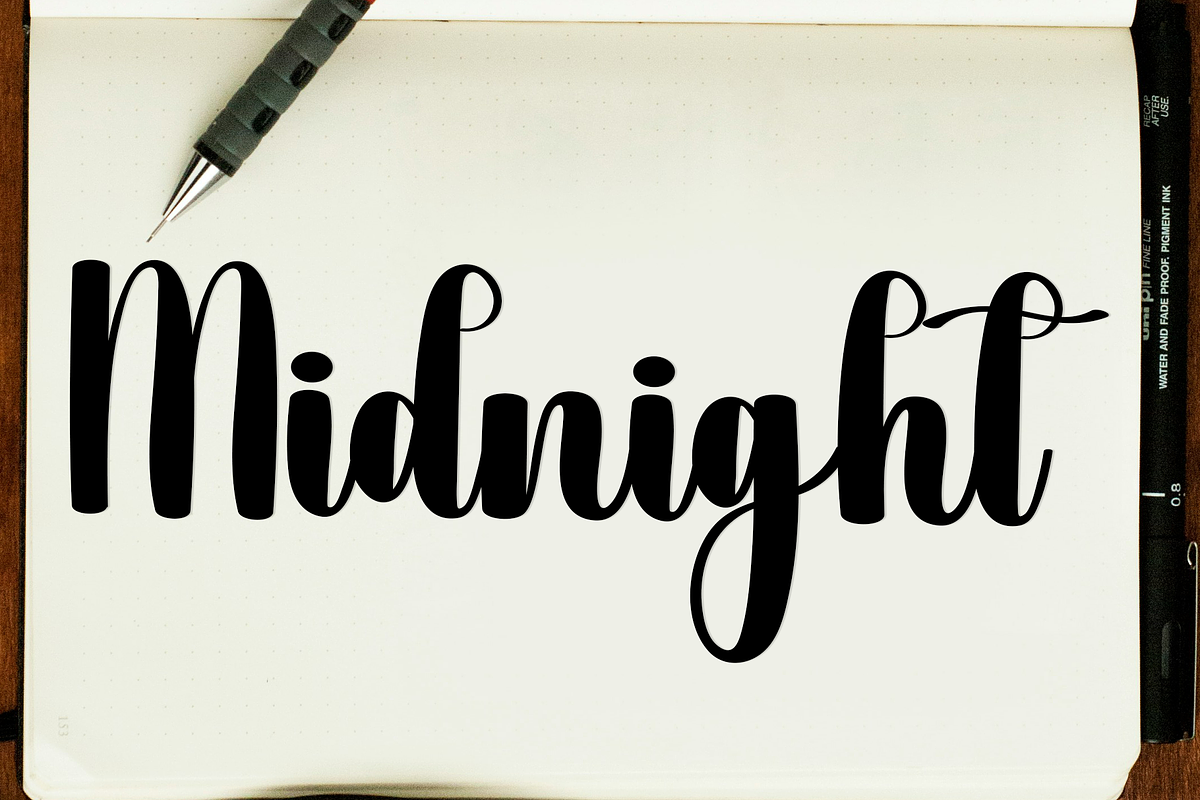 Midnight
RECAP
AFTER
USE.
uni pin FINE LINE
WATER AND FADE PROOF. PIGMENT INK
0.8
153